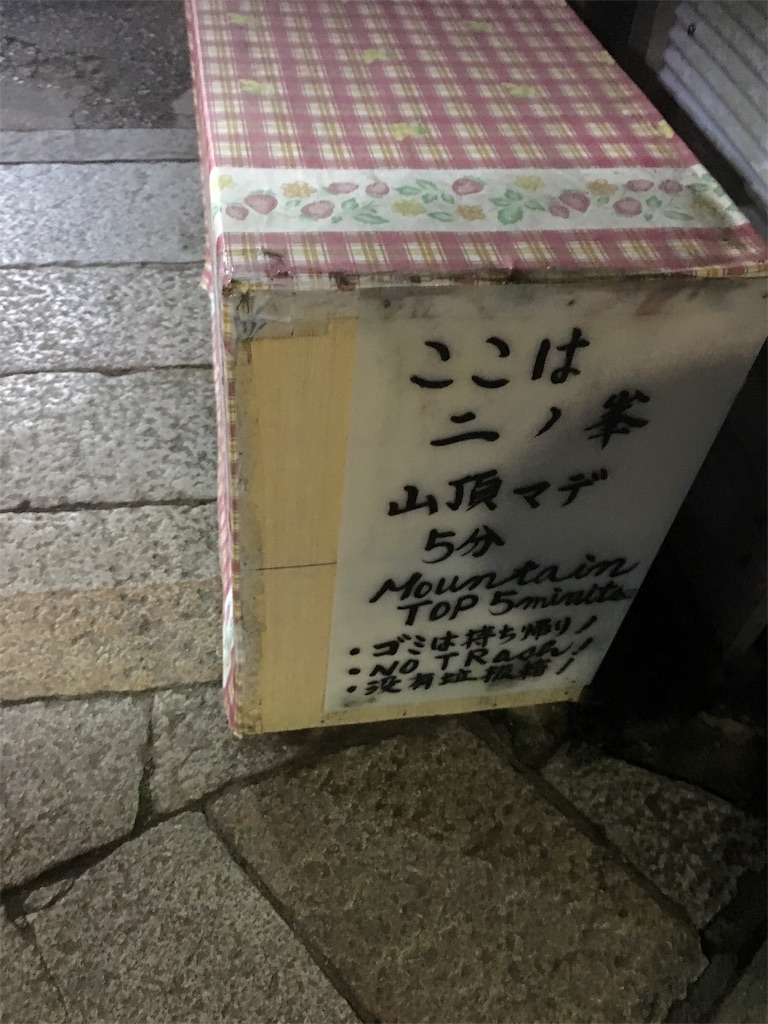 ここは
二ノ峯
山頂マデ
5分
Mountain
TOP 5minits
・ゴミは持ち帰り!
・NO TRash!
・没有垃圾箱!